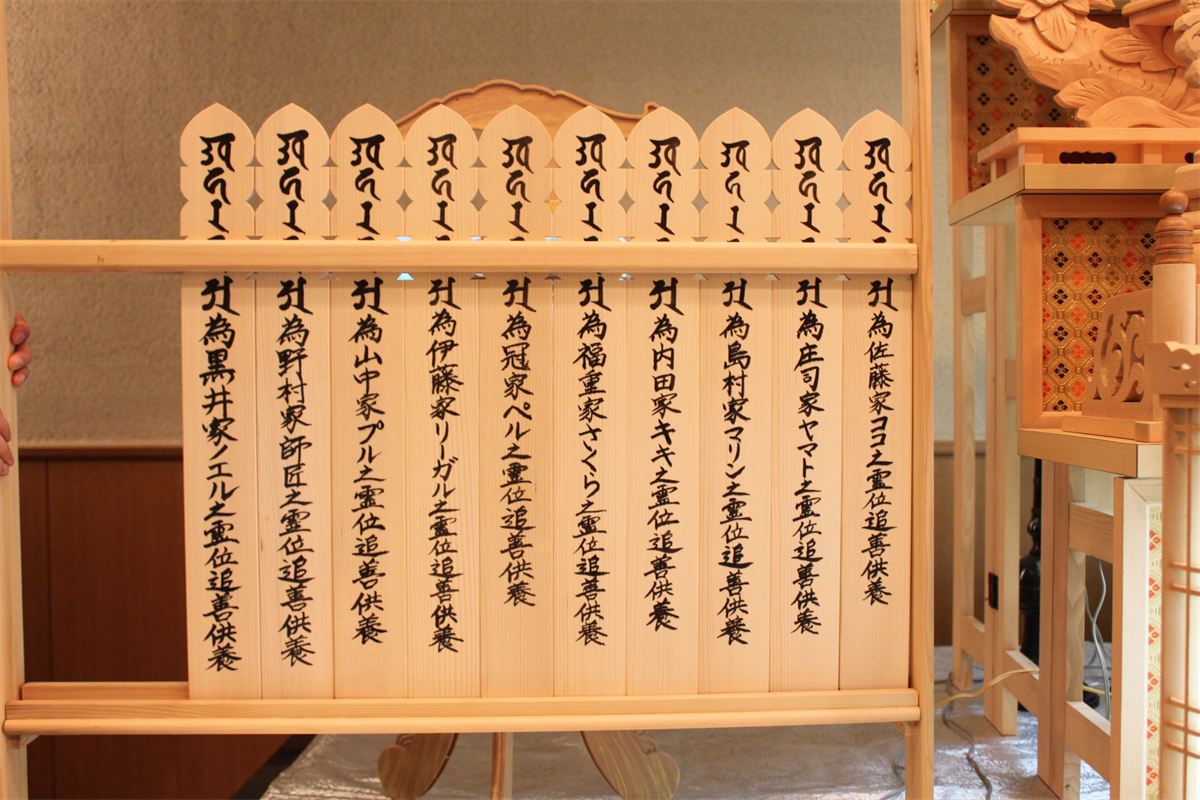 為佐藤家ココ之霊位追善供養
為庄司家ヤマト之霊位追善供養
為島村家マリン之霊位追善供養
為内田家キキ之霊位追善供養
為福重家さくら之霊位追善供養
為冠家ペル之霊位追善供養
為伊藤家リーガル之霊位追善供養
為山中家プル之霊位追善供養
為野村家師匠之霊位追善供養
為黒井家ノエル之霊位追善供養